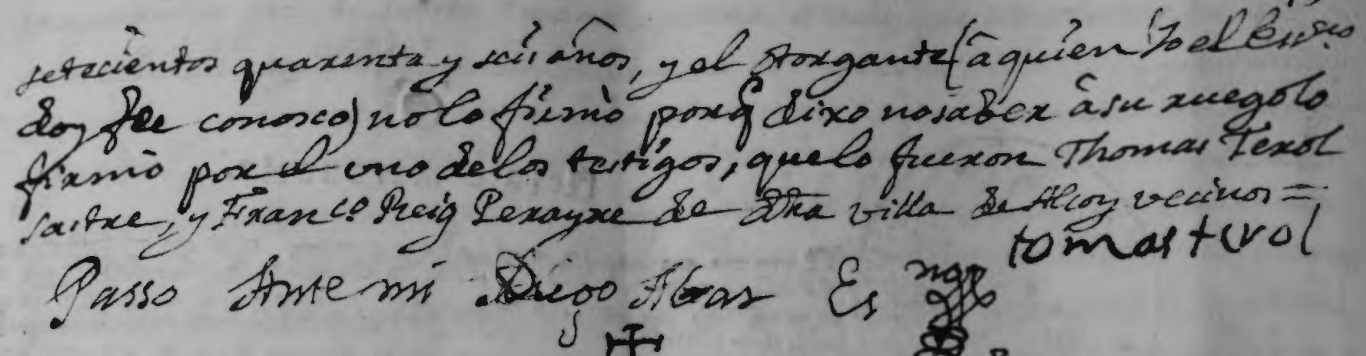 setecientos quarenta y seis años, y el otorgante (â quien Yo el Essno
doy fee conosco) no lo firmò porq̃ dixo no saber â su ruego lo
firmò por el uno de los testigos, que lo fueron Thomas Terol
sastre, y Franco Reig Perayre de dha villa de Alcoy vecinos =
tomas terol
Passo Ante mi Diego Abar Es